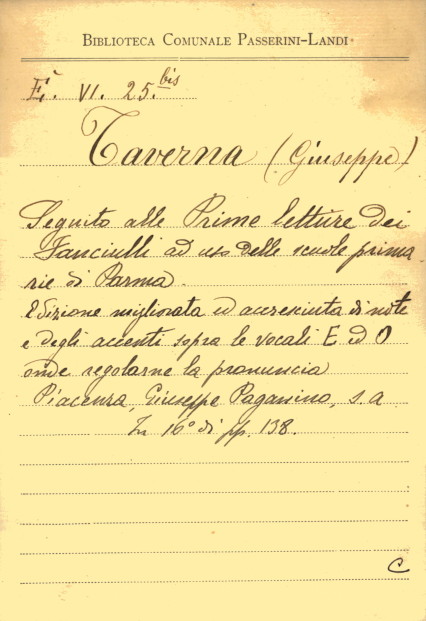 BIBLIOTECA COMUNALE PASSERINI-LANDI
E. VI. 25.bis
Taverna (Giuseppe)
Seguito alle Prime letture dei
Fanciulli ad uso delle scuole prima
rie di Parma.
Edizione migliorata ed accresciuta di note
e degli accenti sopra le vocali E ed O
onde regolarne la pronuncia
Piacenza, Giuseppe Paganino, s. a
In 16° di pp. 138.
C